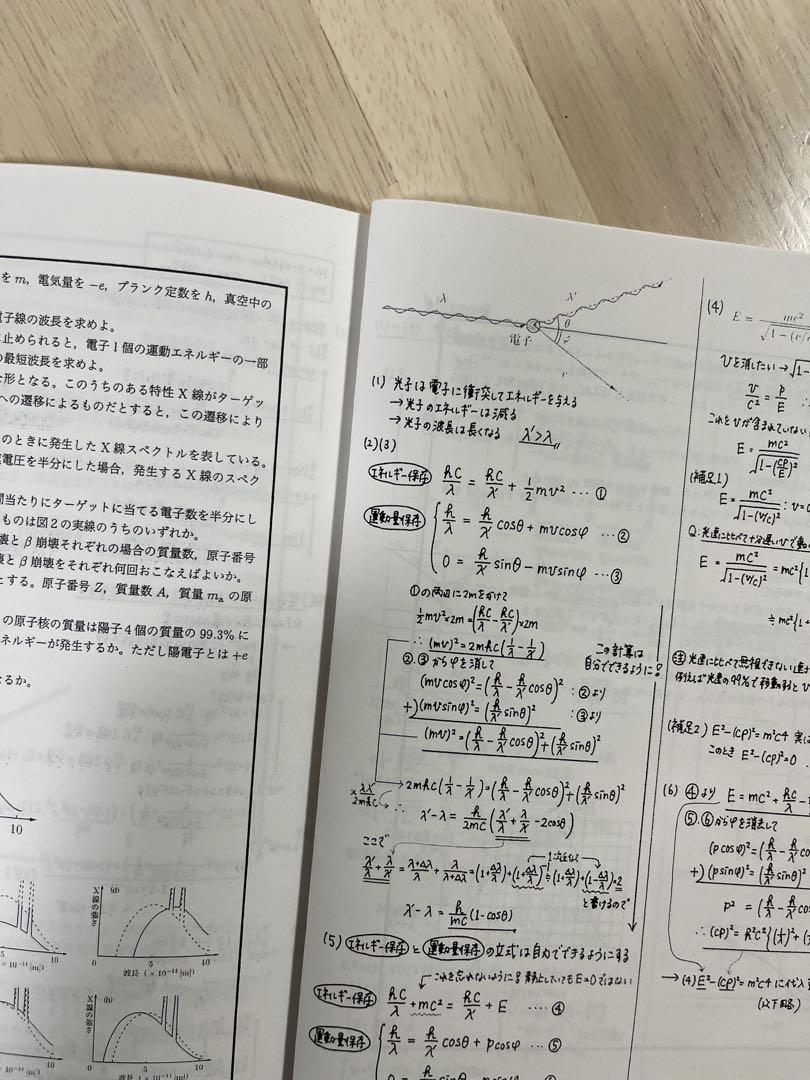 をm, 電気量を −e, プランク定数をh, 真空中の
電子線の波長を求めよ。
止められると, 電子1個の運動エネルギーの一部
の最短波長を求めよ。
な形となる。このうちのある特性X線がターゲッ
への遷移によるものだとすると, この遷移により
のときに発生したX線スペクトルを表している。
電圧を半分にした場合, 発生するX線のスペク
間当たりにターゲットに当てる電子数を半分にし
ものは図2の実線のうちのいずれか。
壊とβ崩壊それぞれの場合の質量数, 原子番号
壊とβ崩壊をそれぞれ何回おこなえばよいか。
とする。原子番号Z, 質量数A, 質量 mₐ の原
の原子核の質量は陽子4個の質量の99.3%に
ネルギーが発生するか。ただし陽電子とは+e
なるか。
10
X線の強さ
(d)
10
5
10
×10⁻¹¹[m])
波長 (×10⁻¹¹[m])
X線の強さ
(h)
10
5
10
×10⁻¹¹[m])
波長 (×10⁻¹¹[m])
λ
λ'
θ
φ
電子
r
(1) 光子は電子に衝突してエネルギーを与える
→光子のエネルギーは減る
→光子の波長は長くなる λ'>λ
(2)(3)
エネルギー保存 hc/λ = hc/λ' + 1/2 mv² … ①
運動量保存 h/λ = h/λ' cosθ + mvcosφ … ②
0 = h/λ' sinθ − mvsinφ … ③
①の両辺に2mをかけて
1/2 mv²×2m = (hc/λ − hc/λ')×2m
∴ (mv)² = 2mhc(1/λ − 1/λ')
②, ③からφを消して
この計算は
自分でできるように!
(mvcosφ)² = (h/λ − h/λ' cosθ)² : ②より
+) (mvsinφ)² = (h/λ' sinθ)² : ③より
(mv)² = (h/λ − h/λ' cosθ)² + (h/λ' sinθ)²
2mhc(1/λ − 1/λ') = (h/λ − h/λ' cosθ)² + (h/λ' sinθ)²
× λλ'/2mhc
∴ λ' − λ = h/2mc (λ'/λ + λ/λ' − 2cosθ)
ここで
λ'/λ + λ/λ' = λ+Δλ/λ + λ/λ+Δλ = (1+Δλ/λ) + (1+Δλ/λ)⁻¹ ≒ (1+Δλ/λ) + (1−Δλ/λ) = 2
と書けるので
λ' − λ = h/mc (1−cosθ)
(5) エネルギー保存 と 運動量保存 の立式は自力でできるようにする
これを忘れないように! 静止していてもE=0ではない
エネルギー保存 hc/λ + mc² = hc/λ' + E …. ④
運動量保存 h/λ = h/λ' cosθ + pcosφ … ⑤
(4) E = mc²/√1−(v/c)
vを消したい → √1−
v/c² = p/E
これをvが含まれていない
E = mc²/√1−(cp/E)²
(補足1)
E = mc²/√1−(v/c)² : v=0
Q. 光速に比べて十分遅いvで動
E = mc²/√1−(v/c)² = mc²{1
≒ mc²{1+
注 光速に比べて無視できない速
例えば光速の99%で移動するとv
(補足2) E²−(cp)² = m²c⁴ 実は
このとき E²−(cp)²=0
(6) ④より E = mc² + hc/λ −
⑤, ⑥からφを消去して
(pcosφ)² = (h/λ − h/λ' co
+) (psinφ)² = (h/λ' sinθ)²
p² = (h/λ − h/λ' cos
∴ (cp)² = h²c²{(1/λ)² + (
→ (4) E²−(cp)² = m²c⁴ に代入
(以下略)